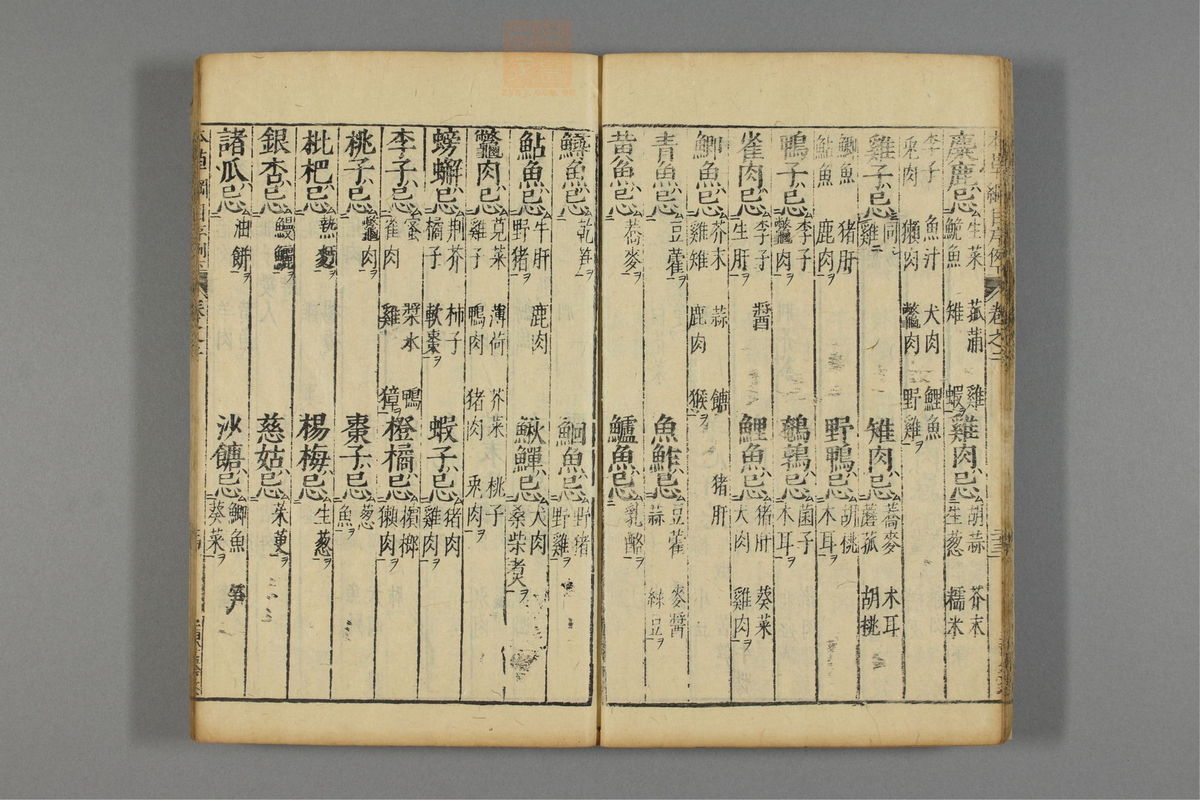 麋鹿忌 生菜 菰蒲 雞 鮠魚 雉 蝦 雞肉忌 胡蒜 芥末 生葱 糯米
李子 魚汁 犬肉 鯉魚 兎肉 獺肉 鱉肉 野雞
雞子忌 同雞 雉肉忌 蕎麥 木耳 蘑菰 胡桃
鯽魚 猪肝 鮎魚 鹿肉 野鴨忌 胡桃 木耳
鴨子忌 李子 鱉肉 鵪鶉忌 菌子 木耳
雀肉忌 李子 醬 生肝 鯉魚忌 猪肝 葵菜 犬肉 雞肉
鯽魚忌 芥末 蒜 糖 猪肝 雞雉 鹿肉 猴
青魚忌 豆藿 魚鮓忌 豆藿 麥醬 蒜 綠豆
黃魚忌 蕎麥 鱸魚忌 乳酪
鱘魚忌 乾笋 鮰魚忌 野猪 野雞
鮎魚忌 牛肝 鹿肉 野猪 鰍鱓忌 犬肉 桑柴煮
鱉肉忌 莧菜 薄荷 芥菜 桃子 雞子 鴨肉 猪肉 兎肉
螃蠏忌 荆芥 柿子 橘子 軟棗 蝦子忌 猪肉 雞肉
李子忌 蜜 漿水 鴨 雀肉 雞 獐 橙橘忌 檳榔 獺肉
桃子忌 鱉肉 棗子忌 葱 魚
枇杷忌 熱麪 楊梅忌 生葱
銀杏忌 鰻鱺 慈姑忌 茱萸
諸瓜忌 油餅 沙糖忌 鯽魚 笋 葵菜
卷之二